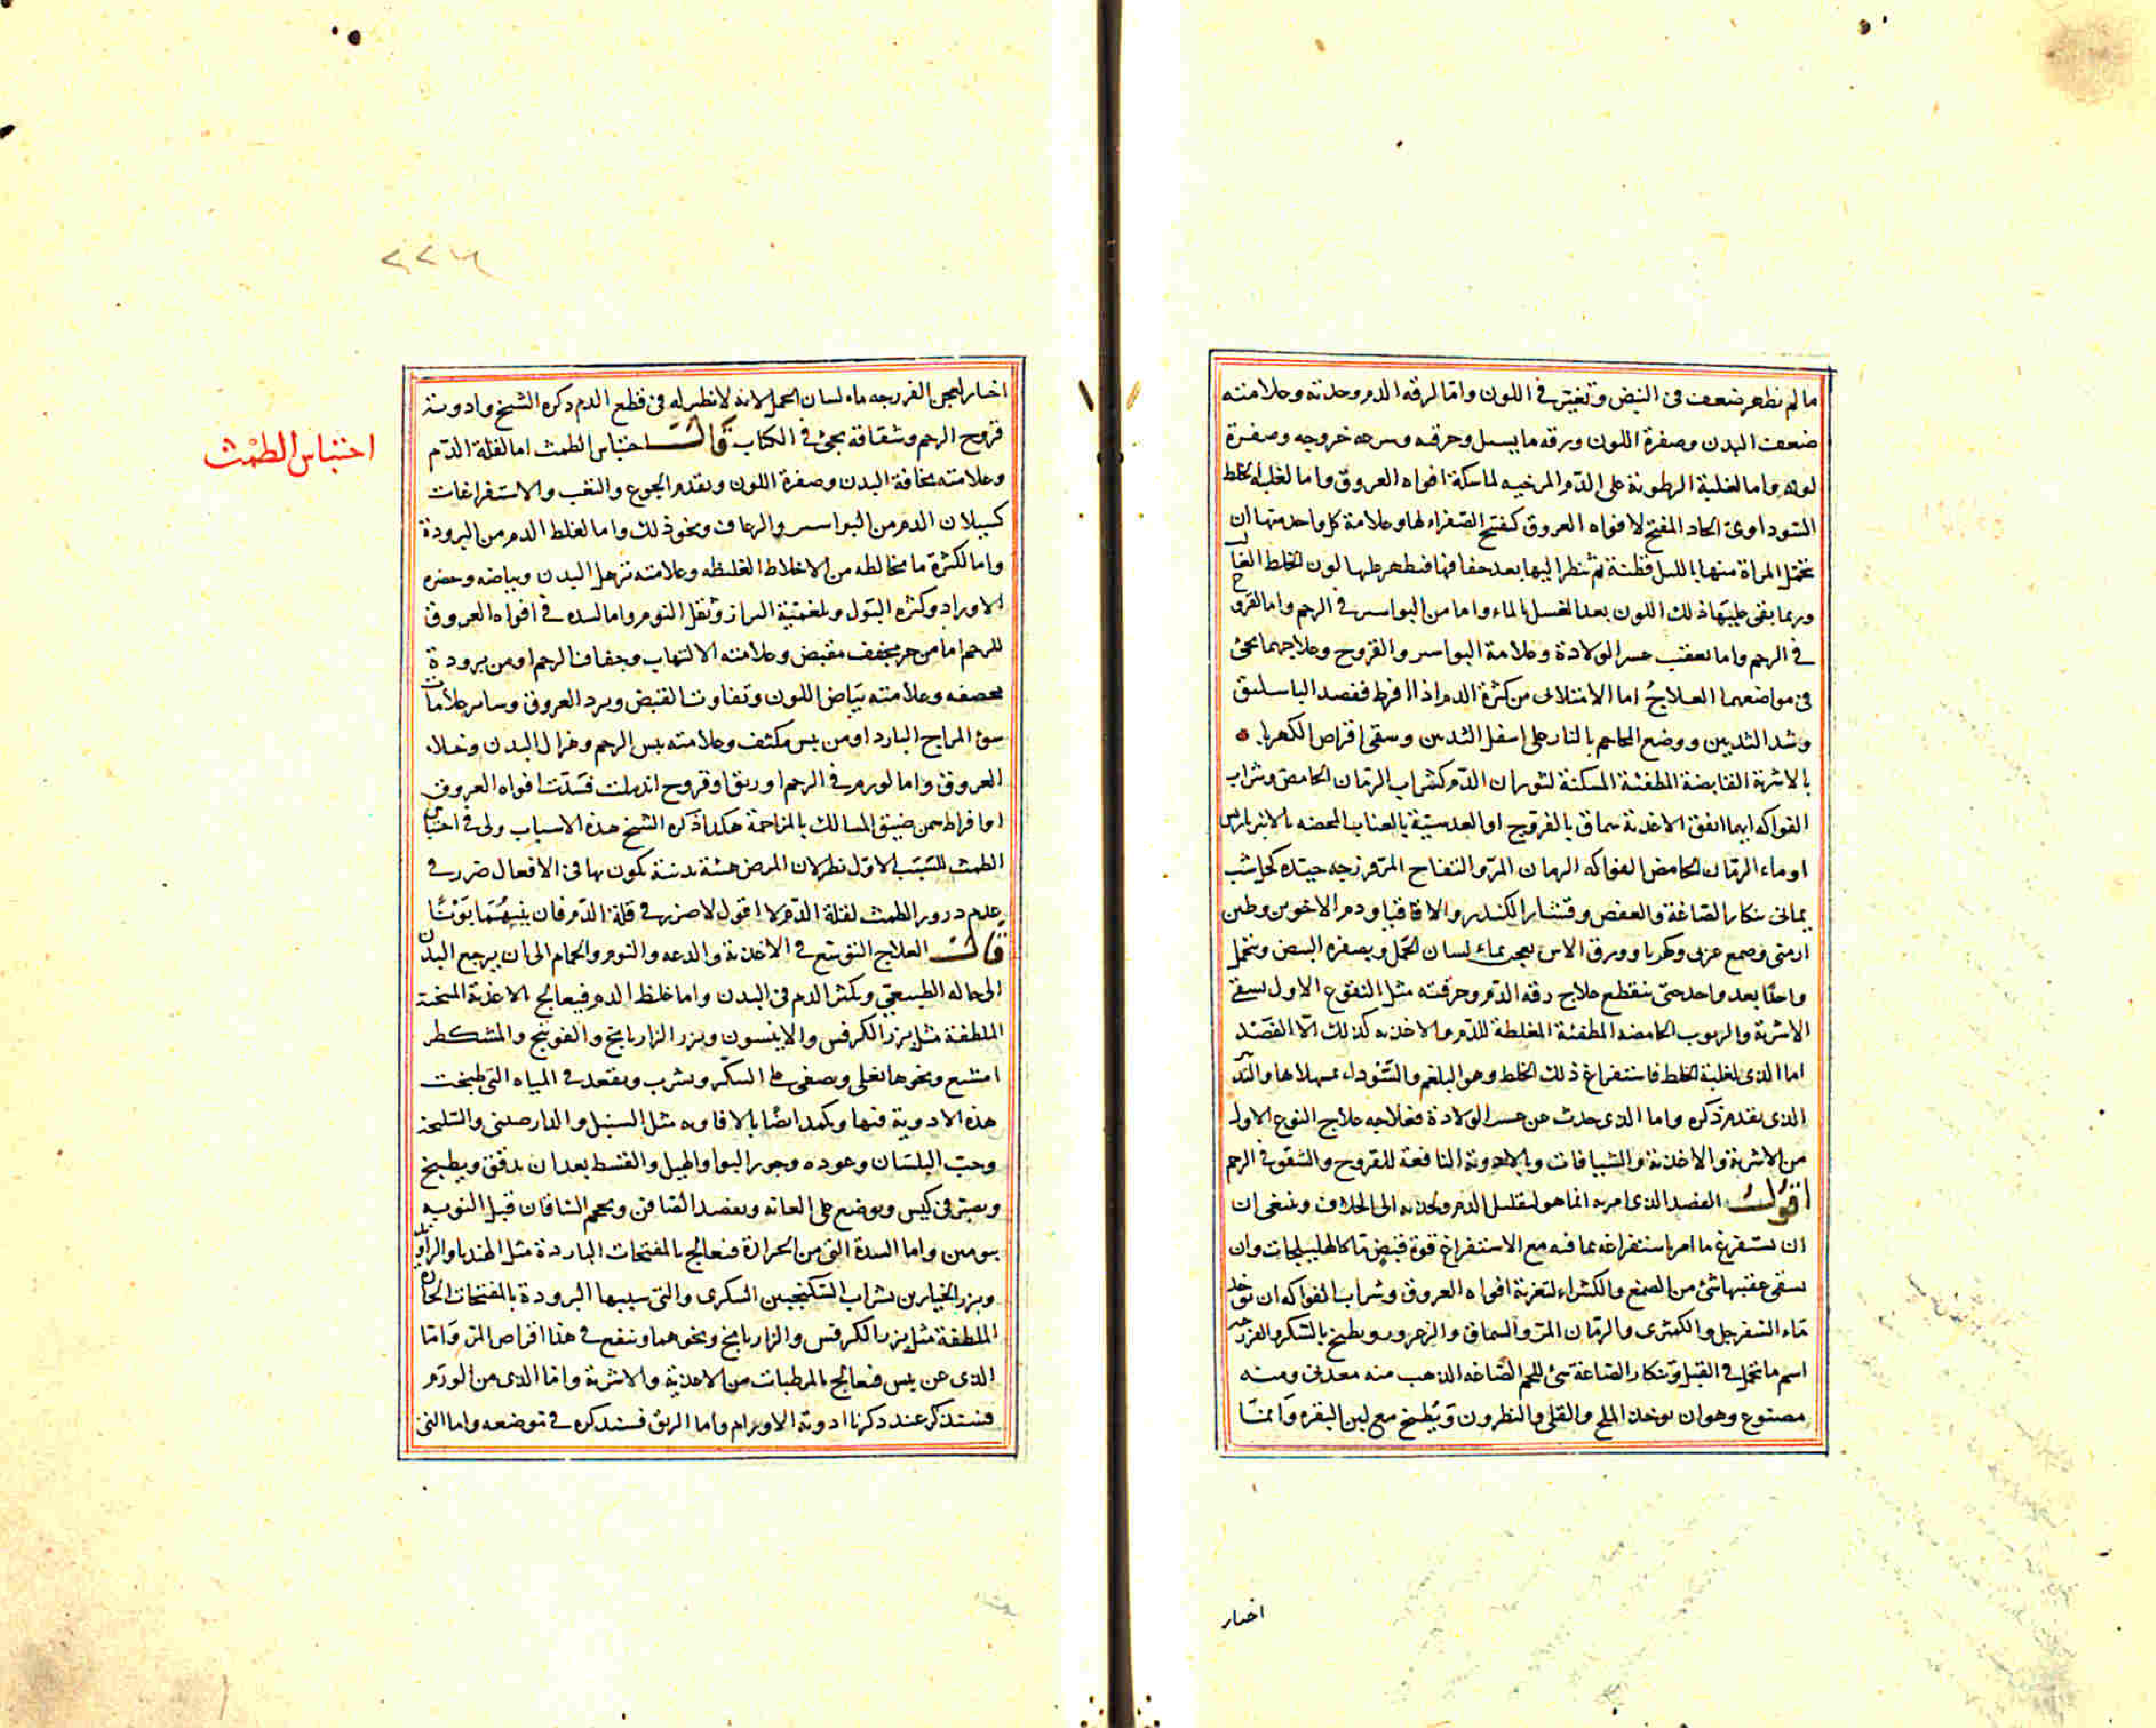 ما لم يظهر ضعف فى النبض وتغير فى اللون واما لرقة الدم وحدته وعلامته
ضعف البدن وصفرة اللون ورقه ما يسيل وحرقه وسرعه خروجه وصفرة
لونه واما لغلبة الرطوبة على الدم المرخيه لماسكة افواه العروق واما لغلبه خلط
السوداوى الحاد المفتح لافواه العروق كفتح الصفراء لها وعلامة كل واحد منها ان
تحتمل المراة منها بالليل قطنة ثم تنظر اليها بعد جفافها فيظهر عليها لون الخلط الغالب
وربما بقى عليها ذلك اللون بعد الغسل بالماء واما من البواسير فى الرحم واما القروح
فى الرحم واما بعقب عسر الولادة وعلامة البواسير والقروح وعلاجهما يجئ
فى مواضعهما العلاج اما الامتلائى من كثرة الدم اذا افرط ففصد الباسليق
وشد الثديين ووضع المحاجم بالنار على اسفل الثديين وسقى اقراص الكهربا
بالاشربة القابضة المطفئة المسكنة لثوران الدم كشراب الرمان الحامض وشراب
الفواكه ايهما اتفق الاغذية سماق بالفروج او العدسية بالعناب المحمضه بالانبرباريس
او ماء الرمان الحامض الفواكه الرمان المز والتفاح المز فرزجه جيده كحل شب
يمانى تنكار الصاغة والعفص وقشار الكندر والاقاقيا ودم الاخوين وطين
ارمنى وصمغ عربى وكهربا وورق الاس يعجن بماء لسان الحمل وبصفره البيض وتحمل
واحدا بعد واحد حتى ينقطع علاج رقه الدم وحرقته مثل النقوع الاول يسقى
الاشربة والربوب الحامضه المطفئة المغلظة للدم والاغذيه كذلك الا الفصد
اما الذى لغلبة الخلط فاستفراغ ذلك الخلط وهو البلغم والسوداء بمسهلاتها والتدبير
الذى تقدم ذكره واما الذى حدث عن عسر الولادة فعلاجه علاج النوع الاول
من الاشربة والاغذية والشيافات وبالادوية النافعة للقروح والشقوق فى الرحم
اقول الفصد الذى امر به انما هو لتقليل الدم وجذبه الى الخلاف وينبغى ان
ان يستفرغ ما امر باستفراغه بما فيه مع الاستفراغ قوة قبض ما كالهليلجات وان
يسقى عقبها شئ من الصمغ والكثيراء لتغرية افواه العروق وشراب الفواكه ان يوخذ
ماء السفرجل والكمثرى والرمان المز والسماق والزعرور ويطبخ بالسكر والفرزجه
اسم ما تحمل فى القبل وتنكار الصاغة شئ للحم الصاغه الذهب منه معدنى ومنه
مصنوع وهو ان يوخذ الملح والقلى والنطرون ويطبخ مع لبن البقره وانما
اختار
٢٢٦
احتباس الطمث
اختار لعجن الفرزجه ماء لسان الحمل لانه لا نظير له فى قطع الدم ذكره الشيخ وادوية
قروح الرحم وشقاقه يجئ فى الكتاب قال احتباس الطمث اما لقلة الدم
وعلامته نحافة البدن وصفرة اللون وتقدم الجوع والتعب والاستفراغات
كسيلان الدم من البواسير والرعاف ونحو ذلك واما لغلظ الدم من البرودة
واما لكثرة ما يخالطه من الاخلاط الغليظه وعلامته ترهل البدن وبياضه وخضره
الاوراد وكثره البول وبلغمية البراز وثقل النوم واما لسده فى افواه العروق
للرحم اما من حر مجفف مقبض وعلامته الالتهاب وجفاف الرحم او من برودة
محصفه وعلامته بياض اللون وتفاوت النبض وبرد العروق وساير علامات
سوء المزاج البارد او من يبس مكثف وعلامته يبس الرحم وهزال البدن وخلاء
العروق واما لورم فى الرحم او رتق او قروح اندملت فسدت افواه العروق
او افراط سمن ضيق المسالك بالمزاحمة هكذا ذكره الشيخ هذه الاسباب ولى فى احتباس
الطمث للسبب الاول نظر لان المرض هيئة بدنية يكون بها فى الافعال ضرر فى
عدم درور الطمث لقلة الدم لا اقول لا ضرر فى قلة الدم فان بينهما بونا
قال العلاج التوسع فى الاغذية والدعه والنوم والحمام الى ان يرجع البدن
الى حاله الطبيعى ويكثر الدم فى البدن واما غلظ الدم فيعالج الاغذية المسخنة
الملطفة مثل بزر الكرفس والانيسون وبزر الرازيانج والفوتنج والمشكطر
امشيع ونحوها يغلى ويصفى على السكر ويشرب ويقعد فى المياه التى طبخت
هذه الادوية فيها ويكمد ايضا بالافاويه مثل السنبل والدارصينى والسليخة
وحب البلسان وعوده وجوزابوا والهيل والقسط بعد ان يدقق ويطبخ
ويصير فى كيس ويوضع على العانه ويفصد الصافن ويحجم الساقان قبل النوبه
بيومين واما السدة التى من الحرارة فيعالج بالمفتحات الباردة مثل الهندبا والراوند
وبزر الخيارين بشراب السكنجبين السكرى والتى سببها البرودة بالمفتحات الحارة
الملطفة مثل بزر الكرفس والرازيانج ونحوهما وينفع فى هذا اقراص المر واما
الذى عن يبس فيعالج بالمرطبات من الاغذية والاشربة واما الذى من الورم
فسنذكر عند ذكرنا ادوية الاورام واما الرتق فسنذكره فى موضعه واما التى